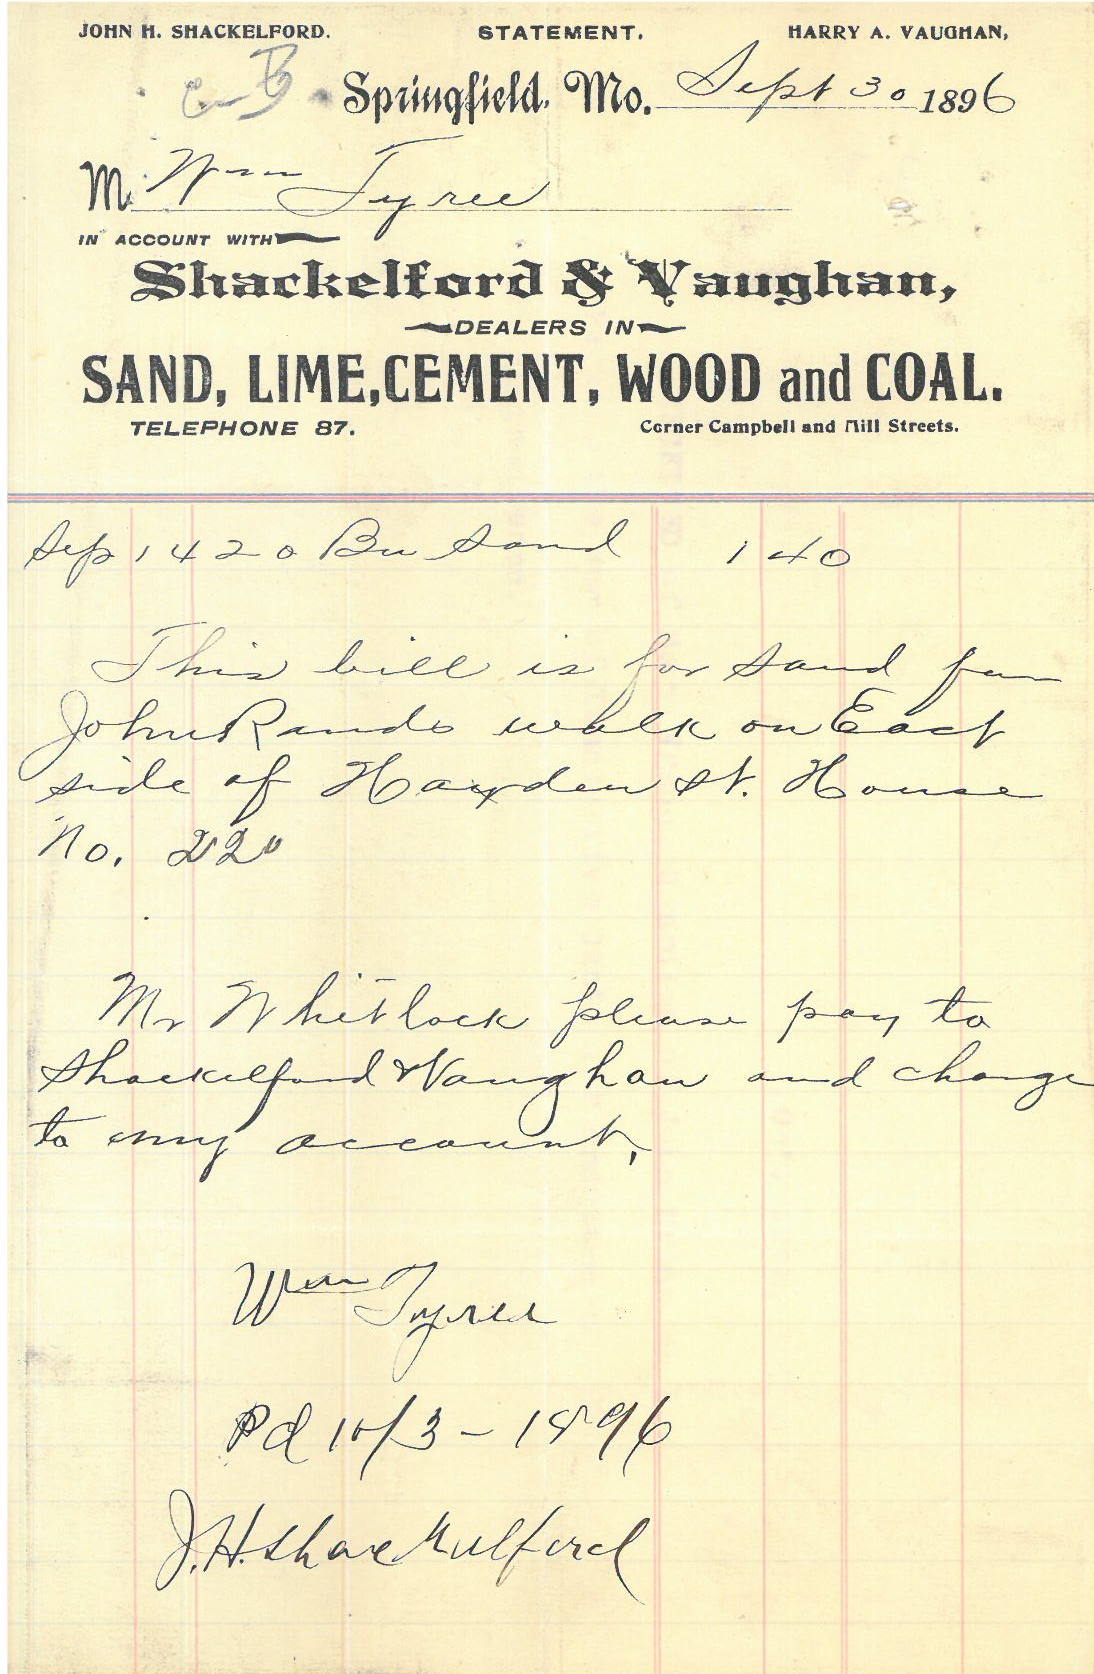 JOHN H. SHACKELFORD. STATEMENT. HARRY A. VAUGHAN,
Springfield, Mo. Sept 30 1896
M. Wm Tyree
IN ACCOUNT WITH
Shackelford & Vaughan,
DEALERS IN
SAND, LIME, CEMENT, WOOD and COAL.
TELEPHONE 87. Corner Campbell and Mill Streets.
Sep 14 20 Bu Sand 1 40
This bill is for sand for
John Rands walk on East
side of Hayden St. House
No. 220
Mr Whitlock please pay to
Shackelford & Vaughan and charge
to my account,
Wm Tyree
Pd 10/3 - 1896
J.H. Shackelford